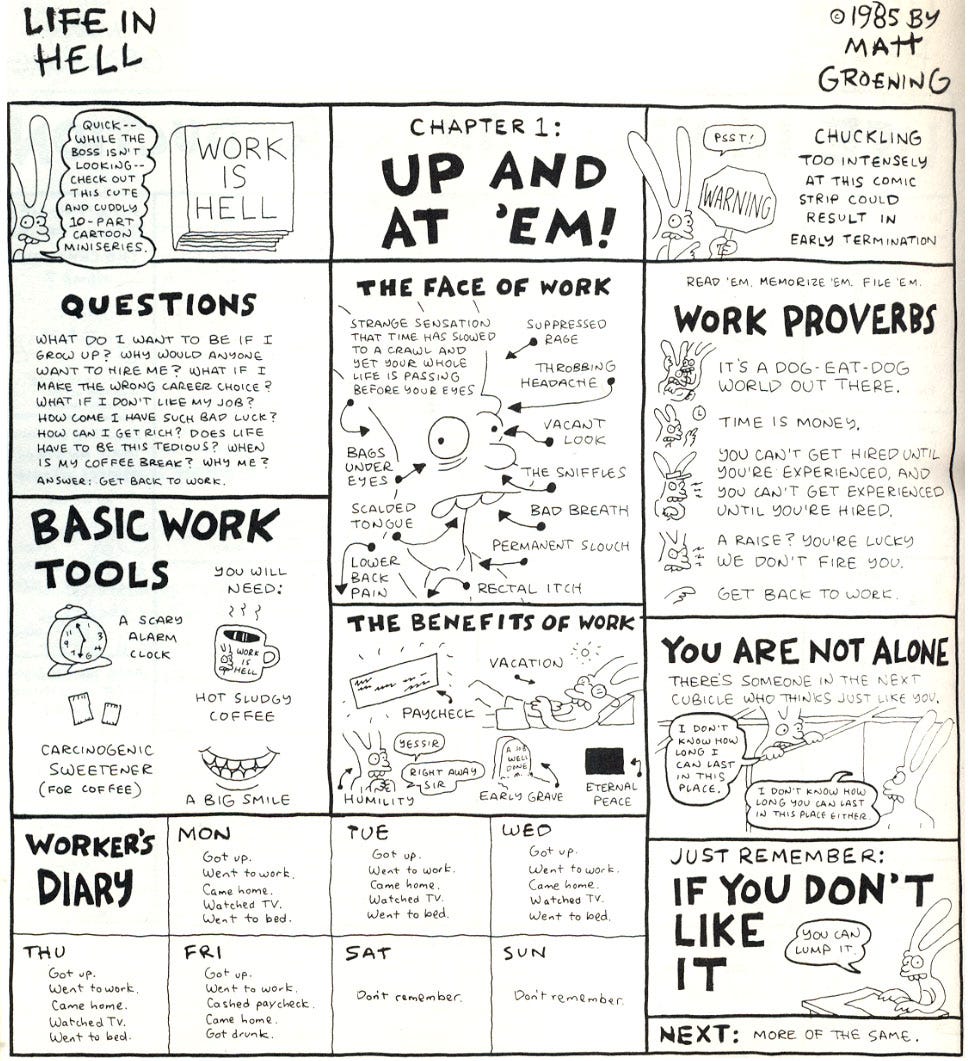 LIFE IN
HELL
©1985 BY
MATT
GROENING
QUICK--
WHILE THE
BOSS ISN'T
LOOKING--
CHECK OUT
THIS CUTE
AND CUDDLY
10-PART
CARTOON
MINISERIES.
WORK
IS
HELL
CHAPTER 1:
UP AND
AT 'EM!
PSST!
WARNING
CHUCKLING
TOO INTENSELY
AT THIS COMIC
STRIP COULD
RESULT IN
EARLY TERMINATION
QUESTIONS
WHAT DO I WANT TO BE IF I
GROW UP? WHY WOULD ANYONE
WANT TO HIRE ME? WHAT IF I
MAKE THE WRONG CAREER CHOICE?
WHAT IF I DON'T LIKE MY JOB?
HOW COME I HAVE SUCH BAD LUCK?
HOW CAN I GET RICH? DOES LIFE
HAVE TO BE THIS TEDIOUS? WHEN
IS MY COFFEE BREAK? WHY ME?
ANSWER: GET BACK TO WORK.
BASIC WORK
TOOLS
YOU WILL
NEED:
A SCARY
ALARM
CLOCK
WORK
IS
HELL
HOT SLUDGY
COFFEE
CARCINOGENIC
SWEETENER
(FOR COFFEE)
A BIG SMILE
THE FACE OF WORK
STRANGE SENSATION
THAT TIME HAS SLOWED
TO A CRAWL AND
YET YOUR WHOLE
LIFE IS PASSING
BEFORE YOUR EYES
SUPPRESSED
RAGE
THROBBING
HEADACHE
VACANT
LOOK
BAGS
UNDER
EYES
THE SNIFFLES
SCALDED
TONGUE
BAD BREATH
PERMANENT SLOUCH
LOWER
BACK
PAIN
RECTAL ITCH
THE BENEFITS OF WORK
PAYCHECK
VACATION
YESSIR
RIGHT AWAY
SIR
HUMILITY
A JOB
WELL
DONE
EARLY GRAVE
ETERNAL
PEACE
READ 'EM. MEMORIZE 'EM. FILE 'EM.
WORK PROVERBS
IT'S A DOG-EAT-DOG
WORLD OUT THERE.
TIME IS MONEY.
YOU CAN'T GET HIRED UNTIL
YOU'RE EXPERIENCED, AND
YOU CAN'T GET EXPERIENCED
UNTIL YOU'RE HIRED.
A RAISE? YOU'RE LUCKY
WE DON'T FIRE YOU.
GET BACK TO WORK.
YOU ARE NOT ALONE
THERE'S SOMEONE IN THE NEXT
CUBICLE WHO THINKS JUST LIKE YOU.
I DON'T
KNOW HOW
LONG I
CAN LAST
IN THIS
PLACE.
I DON'T KNOW HOW
LONG YOU CAN LAST
IN THIS PLACE EITHER.
WORKER'S
DIARY
MON
Got up.
Went to work.
Came home.
Watched TV.
Went to bed.
TUE
Got up.
Went to work.
Came home.
Watched TV.
Went to bed.
WED
Got up.
Went to work.
Came home.
Watched TV.
Went to bed.
THU
Got up.
Went to work.
Came home.
Watched TV.
Went to bed.
FRI
Got up.
Went to work.
Cashed paycheck.
Came home.
Got drunk.
SAT
Don't remember.
SUN
Don't remember.
JUST REMEMBER:
IF YOU DON'T
LIKE
IT
YOU CAN
LUMP IT.
NEXT: MORE OF THE SAME.